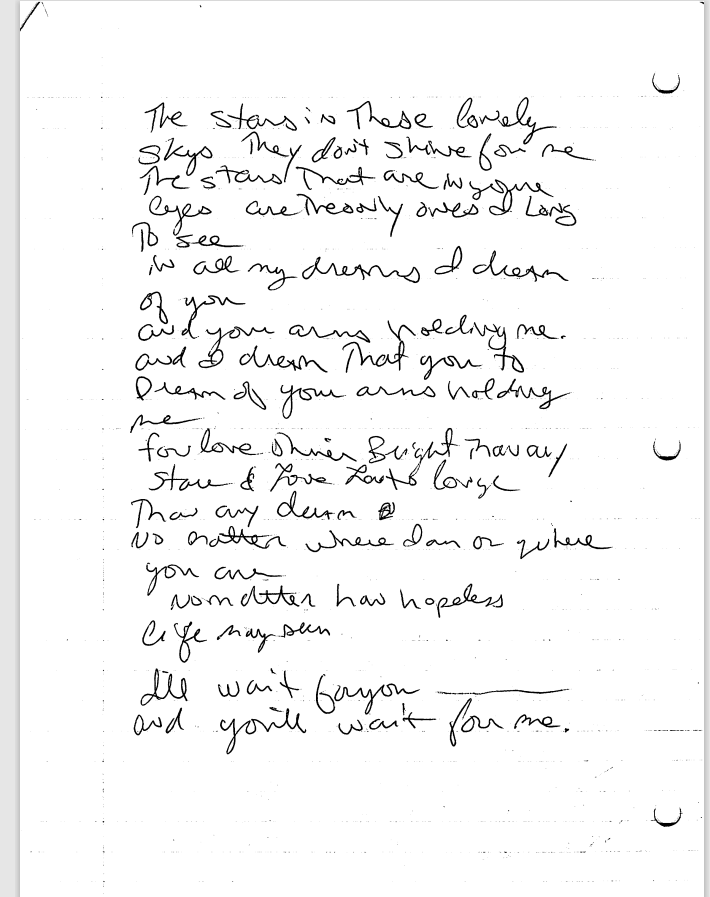 The stars in These lonely
skys They don't shine for me
The stars That are in your
eyes are The only ones I Long
To see
in all my dreams I dream
of you
and your arms holding me.
and I dream That you to
Dream of your arms holding
me
for love shines Bright Than any
stare & Love Lasts longe
Than any dream
No matter where I am or where
you are
No matter how hopeless
life may seem
I'll wait for you
and you'll wait for me.